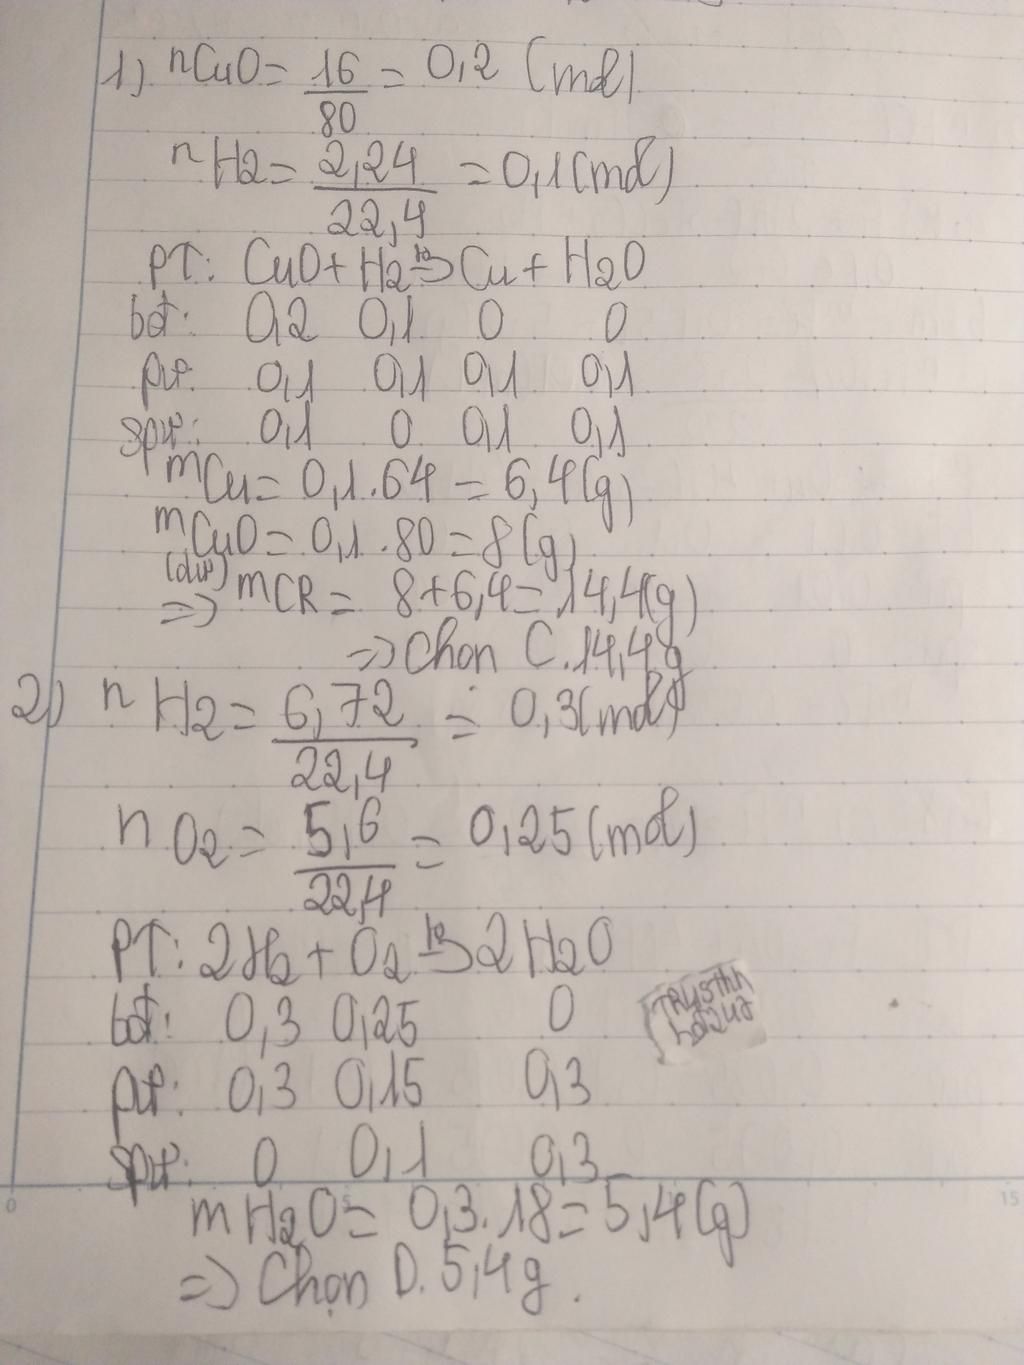 1) nCuO = 16/80 = 0,2 (mol)
nH2 = 2,24/22,4 = 0,1 (mol)
PT: CuO + H2 t°→ Cu + H2O
bđ: 0,2 0,1 0 0
pư: 0,1 0,1 0,1 0,1
spư: 0,1 0 0,1 0,1
mCu = 0,1.64 = 6,4(g)
mCuO = 0,1.80 = 8(g)
(dư)
=> mCR = 8+6,4 = 14,4(g)
=> Chọn C. 14,4g
2) nH2 = 6,72/22,4 = 0,3(mol)
nO2 = 5,6/22,4 = 0,25(mol)
PT: 2H2 + O2 t°→ 2H2O
bđ: 0,3 0,25 0
pư: 0,3 0,15 0,3
spư: 0 0,1 0,3
0 5 15
mH2O = 0,3.18 = 5,4(g)
=> Chọn D. 5,4g.